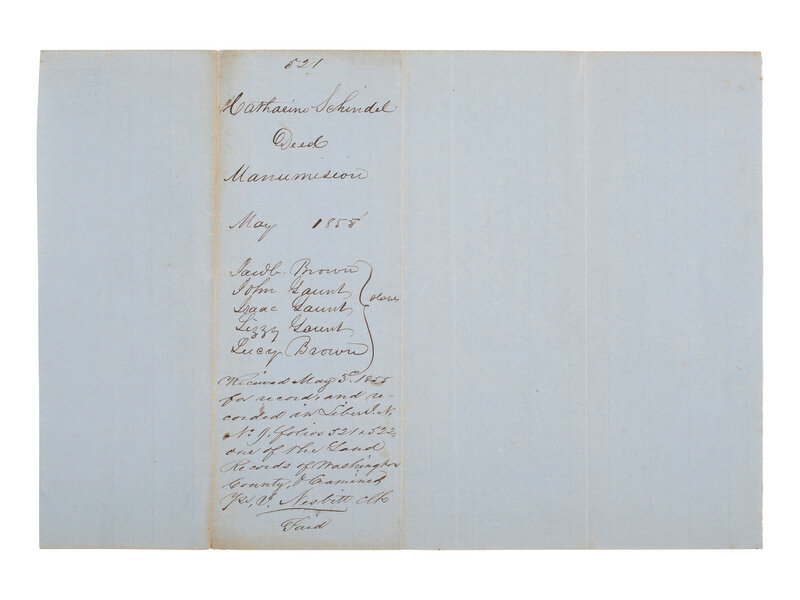 521
Katharine Schindel
Deed
Manumision
May 1855
Jacob Brown
John Gaunt
Isaac Gaunt
Lizzy Gaunt
Lucy Brown
slaves
Received May 5th 1855
for record, and re-
corded in Liber I. N,
No 9, folios 521 & 522,
one of the Land
Records of Washington
County, & Examined
Nesbitt clk
Paid